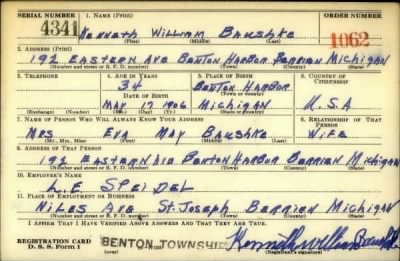 SERIAL NUMBER 1. NAME (Print) ORDER NUMBER
4341 Kenneth William Baushke 1062
(First) (Middle) (Last)
2. ADDRESS (Print)
192 EASTERN AVE BENTON HARBOR BERRIEN MICHIGAN
(Number and street or R. F. D. number) (Town) (County) (State)
3. TELEPHONE 4. AGE IN YEARS 5. PLACE OF BIRTH 6. COUNTRY OF CITIZENSHIP
34 BENTON HARBOR
DATE OF BIRTH (Town or county)
MAY 17 1906 MICHIGAN U.S.A
(Exchange) (Number) (Mo.) (Day) (Yr.) (State or country)
7. NAME OF PERSON WHO WILL ALWAYS KNOW YOUR ADDRESS 8. RELATIONSHIP OF THAT PERSON
MRS EVA MAY BAUSHKE WIFE
(Mr., Mrs., Miss) (First) (Middle) (Last)
9. ADDRESS OF THAT PERSON
192 EASTERN AVE BENTON HARBOR BERRIEN MICHIGAN
(Number and street or R. F. D. number) (Town) (County) (State)
10. EMPLOYER'S NAME
L.E. SPEIDEL
11. PLACE OF EMPLOYMENT OR BUSINESS
NILES AVE ST. JOSEPH BERRIEN MICHIGAN
(Number and street or R. F. D. number) (Town) (County) (State)
I AFFIRM THAT I HAVE VERIFIED ABOVE ANSWERS AND THAT THEY ARE TRUE.
REGISTRATION CARD
D. S. S. Form 1 BENTON TOWNSHIP Kenneth William Baushke
(over) (Registrant's signature)